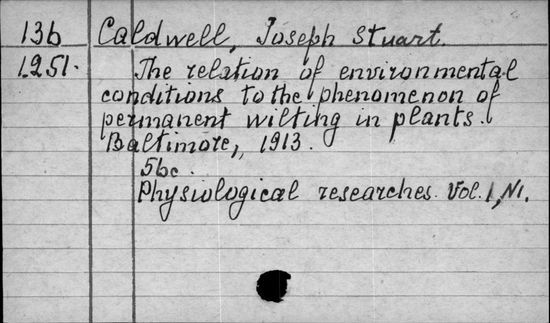 136 Caldwell, Joseph Stuart.
1251. The relation of environmental
conditions to the phenomenon of
permanent wilting in plants.
Baltimore, 1913.
56c.
Physiological researches. Vol. 1, N1.